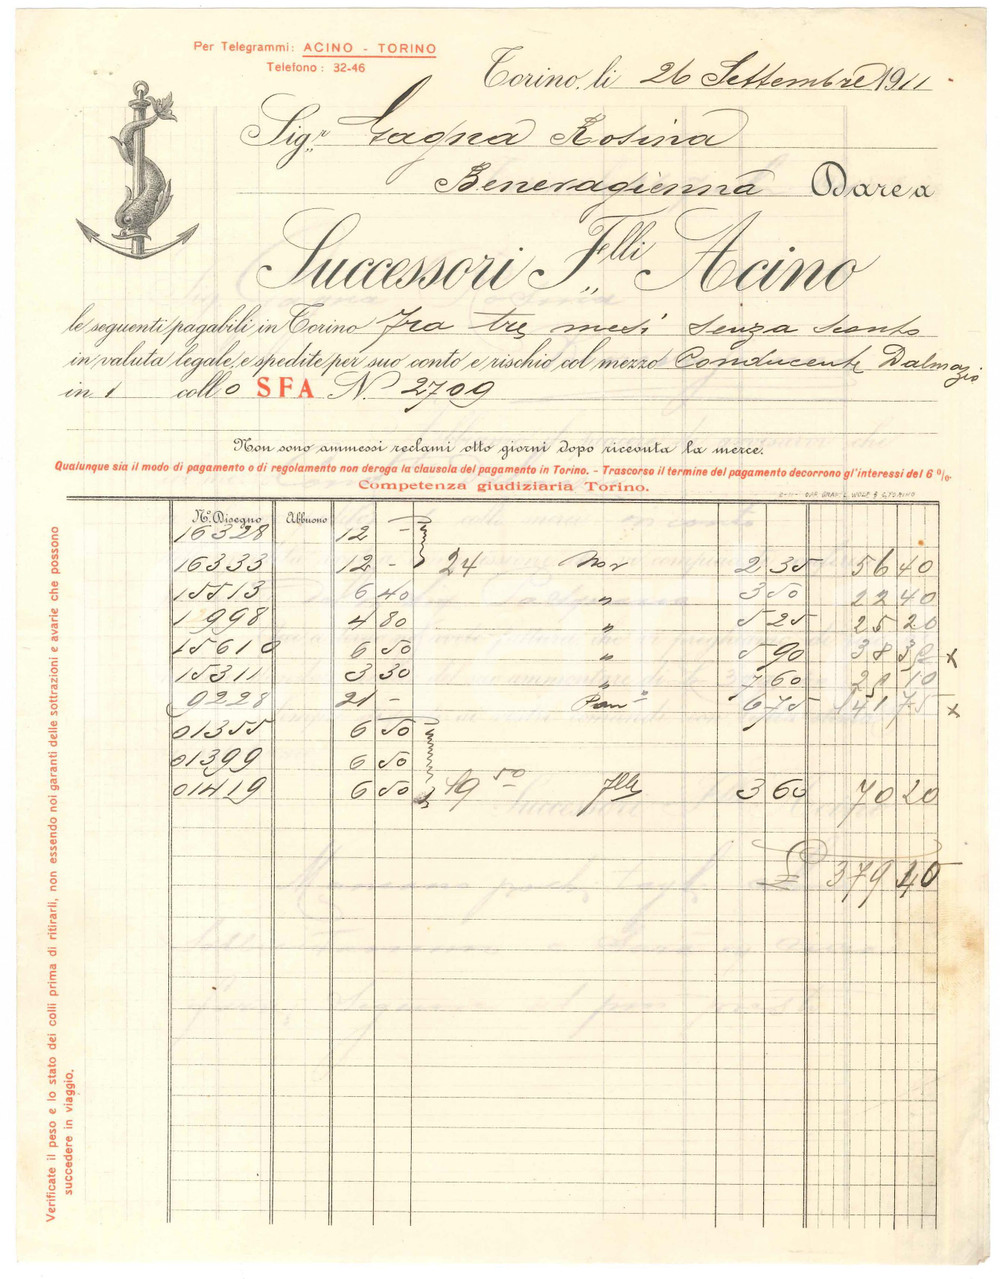 Per Telegrammi: ACINO - TORINO
Telefono: 32-46
Torino, li 26 Settembre 1911
Sig.r Gagna Rosina
Benevagienna Dare a
Successori F.lli Acino
le seguenti pagabili in Torino fra tre mesi senza sconto
in valuta legale, e spedite per suo conto e rischio col mezzo Conducente Dalmazio
in 1 collo SFA N. 2709
Non sono ammessi reclami otto giorni dopo ricevuta la merce.
Qualunque sia il modo di pagamento o di regolamento non deroga la clausola del pagamento in Torino. - Trascorso il termine del pagamento decorrono gl'interessi del 6 %.
Competenza giudiziaria Torino.
N.o Disegno Abbuono
16328 12 -
16333 12 - 24 Nov 2 35 56 40
15513 6 40 " 3 50 22 40
1998 4 80 " 5 25 25 20
15610 6 50 " 5 90 38 35 x
15311 3 30 " 7 60 25 10
9228 21 - Pan 6 75 141 75 x
01355 6 50
01399 6 50
01419 6 50 19 50 3 60 70 20
£ 379 40
Verificate il peso e lo stato dei colli prima di ritirarli, non essendo noi garanti delle sottrazioni e avarie che possono
succedere in viaggio.